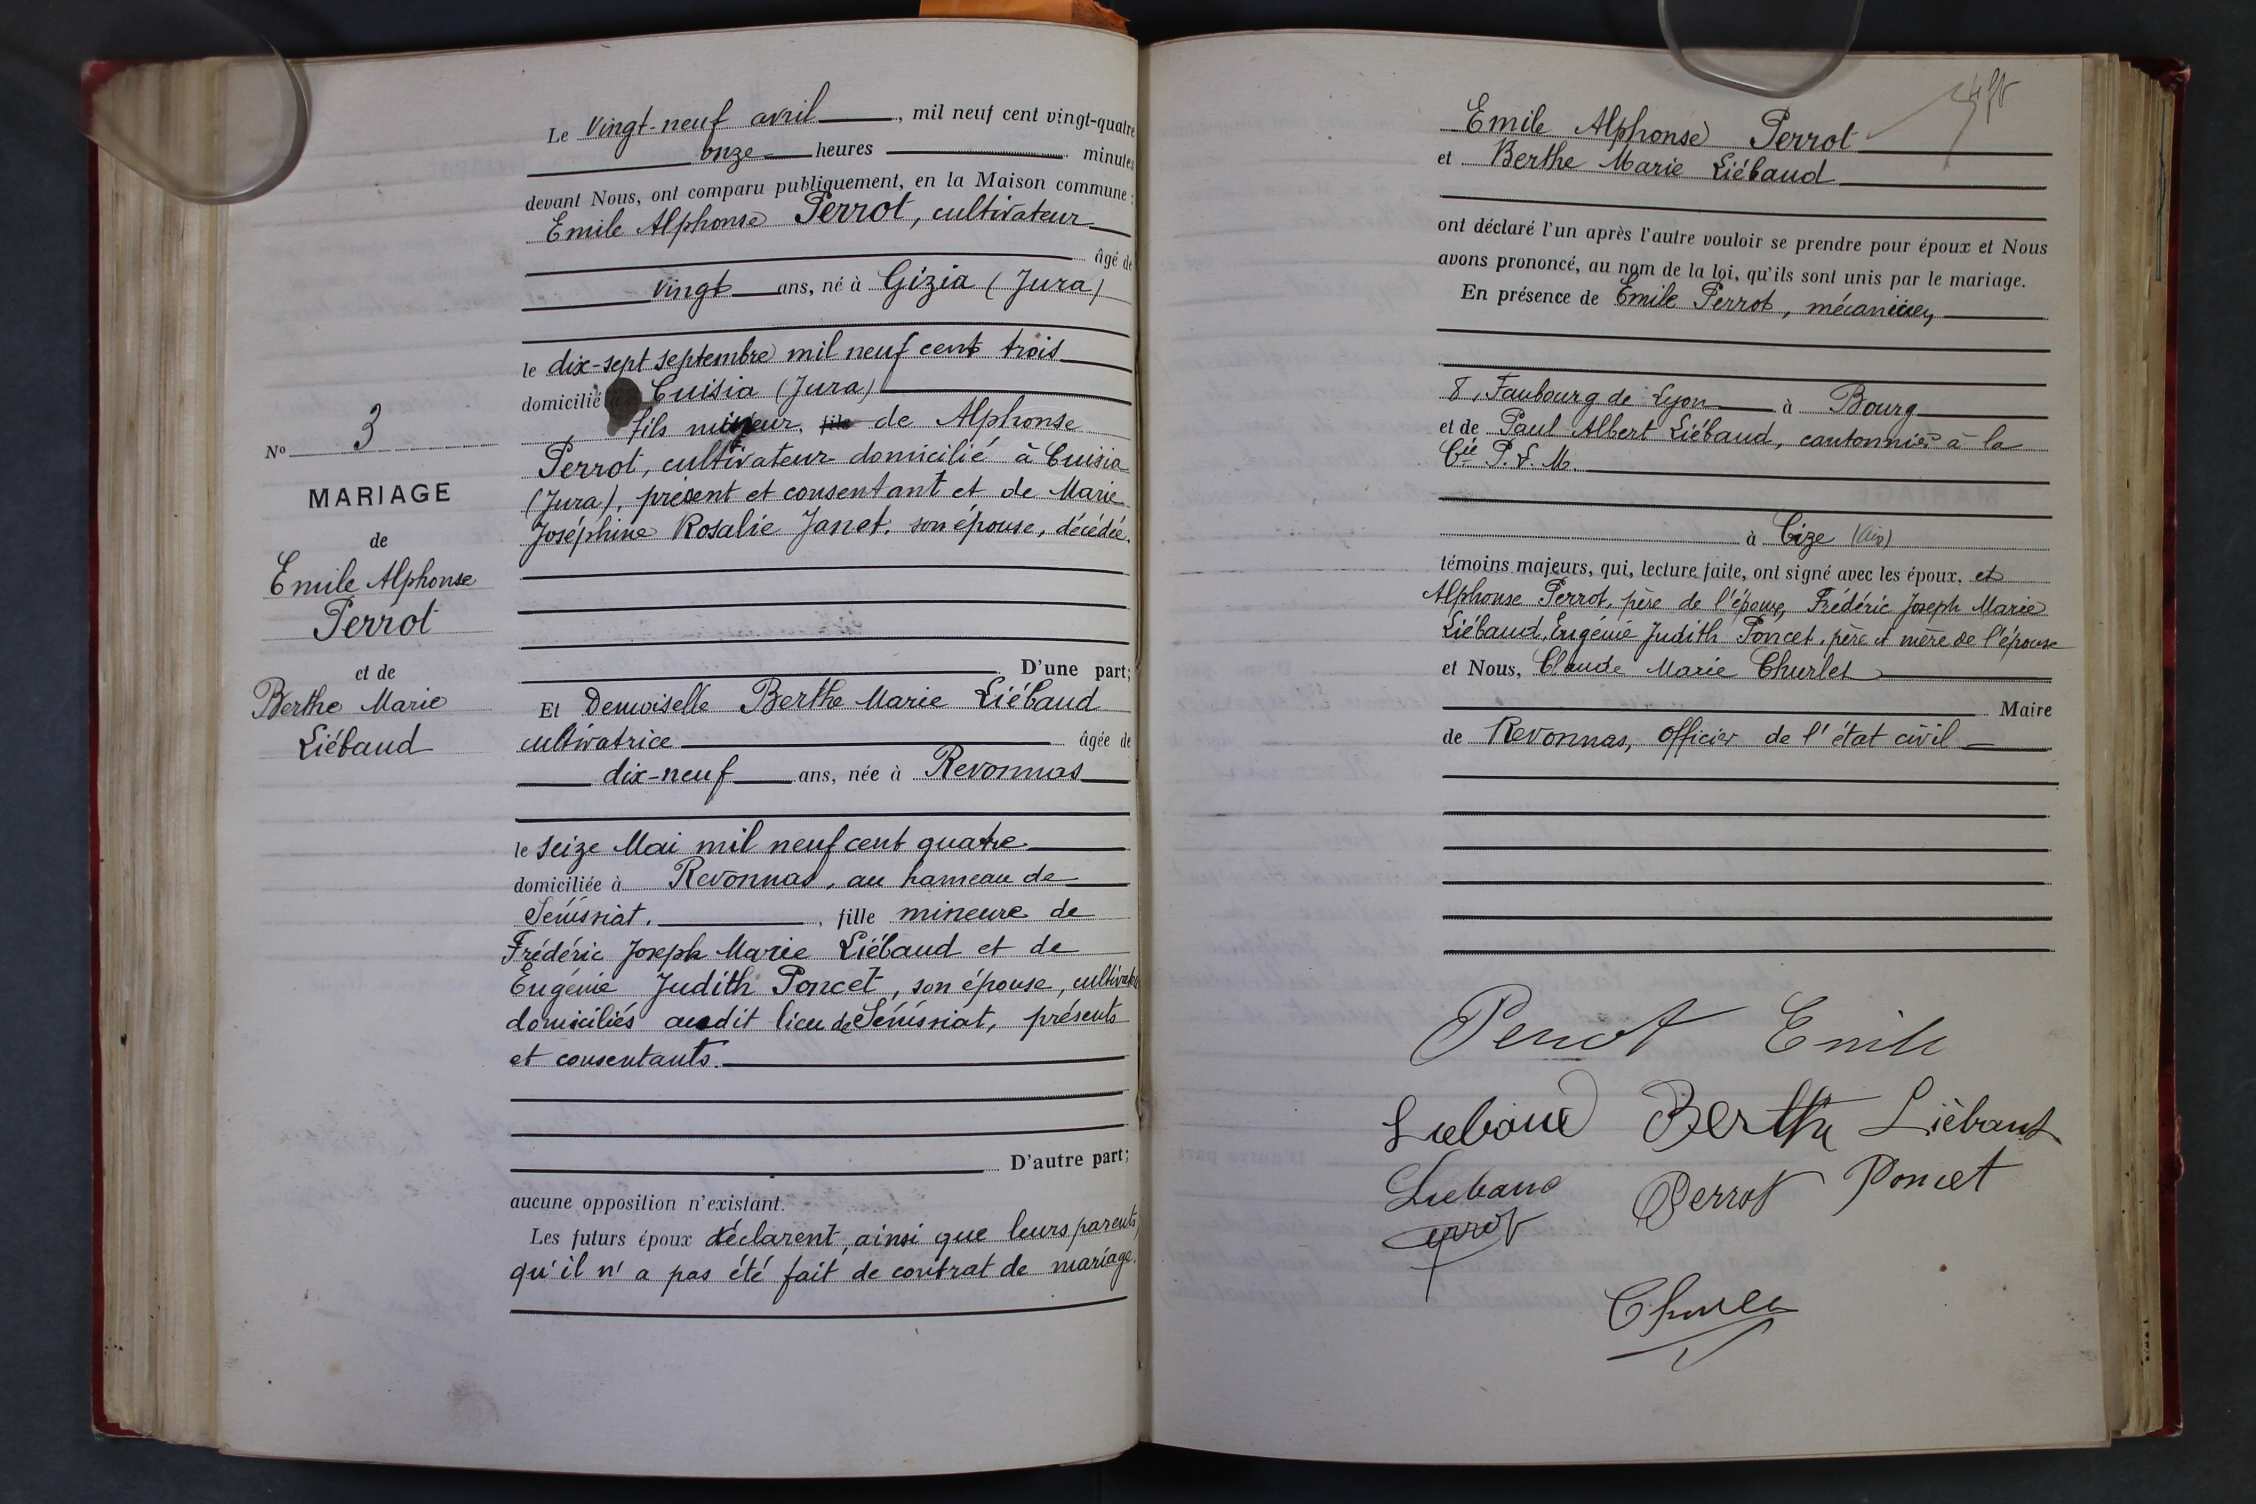 Le vingt-neuf avril, mil neuf cent vingt-quatre
onze heures minutes
devant Nous, ont comparu publiquement, en la Maison commune :
Emile Alphonse Perrot, cultivateur
âgé de
vingt ans, né à Gizia (Jura)
le dix-sept septembre mil neuf cent trois
domicilié à Cuisia (Jura)
fils mineur, fils de Alphonse
Perrot, cultivateur domicilié à Cuisia
(Jura), présent et consentant et de Marie
Joséphine Rosalie Janet, son épouse, décédée.
D'une part;
No 3
MARIAGE
de
Emile Alphonse
Perrot
et de
Berthe Marie
Liébaud
Et Demoiselle Berthe Marie Liébaud
cultivatrice âgée de
dix-neuf ans, née à Revonnas
le seize Mai mil neuf cent quatre
domiciliée à Revonnas, au hameau de
Sénissiat, fille mineure de
Frédéric Joseph Marie Liébaud et de
Eugénie Judith Poncet, son épouse,
domiciliés audit lieu de Sénissiat, présents
et consentants.
D'autre part;
aucune opposition n'existant.
Les futurs époux déclarent, ainsi que leurs parents,
qu'il n'a pas été fait de contrat de mariage.
Emile Alphonse Perrot
et Berthe Marie Liébaud
ont déclaré l'un après l'autre vouloir se prendre pour époux et Nous
avons prononcé, au nom de la loi, qu'ils sont unis par le mariage.
En présence de Emile Perrot, mécanicien
8, Faubourg de Lyon à Bourg
et de Paul Albert Liébaud, cantonnier à la
Cie P.L.M.
à Cize (Ain)
témoins majeurs, qui, lecture faite, ont signé avec les époux, et
Alphonse Perrot, père de l'époux, Frédéric Joseph Marie
Liébaud, Eugénie Judith Poncet, père et mère de l'épouse
et Nous, Claude Marie Churlet
Maire
de Revonnas, officier de l'état civil
Perrot Emile
Liebaud Berthe Liébaud
Liebaud Perrot Poncet
Perrot